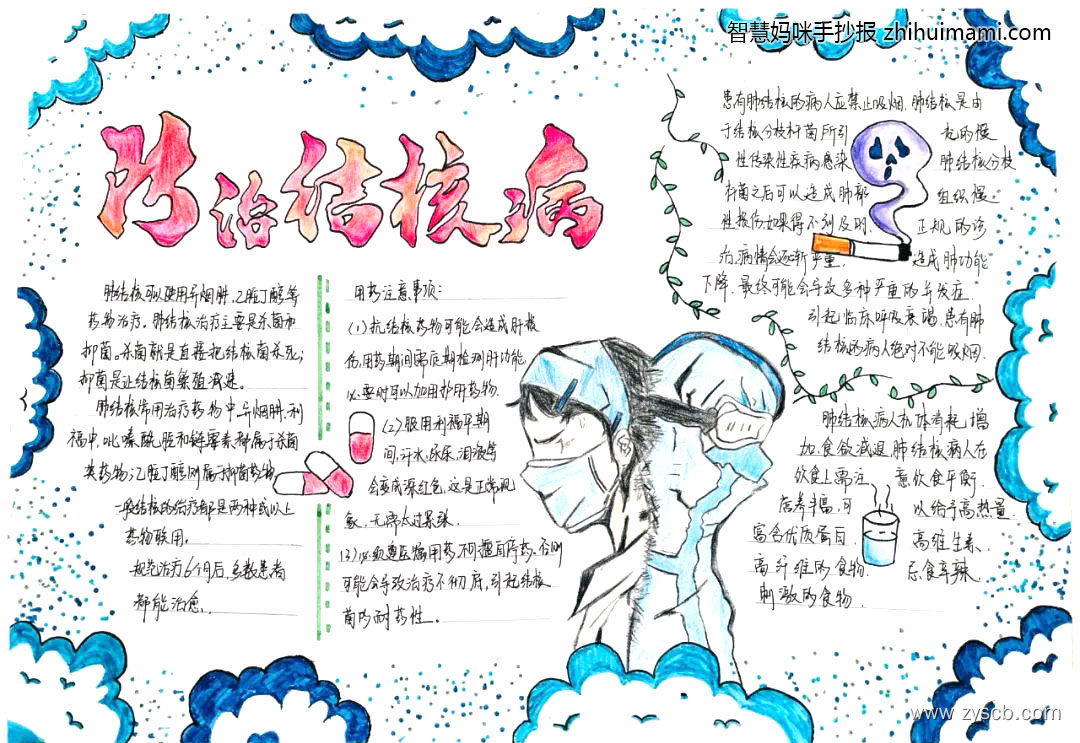 智慧妈咪手抄报 zhihuimami.com
防治结核病
肺结核可以使用异烟肼、乙胺丁醇等
药物治疗。肺结核治疗主要是杀菌和
抑菌。杀菌就是直接把结核菌杀死;
抑菌是让结核菌繁殖减速。
肺结核常用治疗药物中异烟肼、利
福平、吡嗪酰胺和链霉素都属于杀菌
类药物;乙胺丁醇则属于抑菌药物
一般结核的治疗都是两种或以上
药物联用。
规范治疗6个月后,多数患者
都能治愈。
用药注意事项:
(1)抗结核药物可能会造成肝损
伤,用药期间需定期检测肝功能,
必要时可以加用护肝药物.
(2)服用利福平期
间,汗水、尿尿、泪液等
会变成深红色,这是正常现
象,无需太过紧张.
(3)必须遵医嘱用药,不擅自停药,否则
可能会导致治疗不彻底,引起结核
菌的耐药性。
患有肺结核的病人应禁止吸烟.肺结核是由
于结核分枝杆菌所引 起的慢
性传染性疾病感染 肺结核分枝
杆菌之后可以造成肺部 组织慢.
性损伤如果得不到及时. 正规的诊
治,病情会逐渐严重, 造成肺功能
下降.最终可能会导致多种严重的并发症.
引起临床呼吸衰竭.患有肺
结核的病人绝对不能吸烟.
肺结核病人机体有耗,增
加.食欲减退.肺结核病人在
饮食上需注 意饮食平衡.
营养丰富,可 以给予高热量.
富含优质蛋白. 高维生素.
高纤维的食物. 忌食辛辣.
刺激的食物.
www.zyscb.com